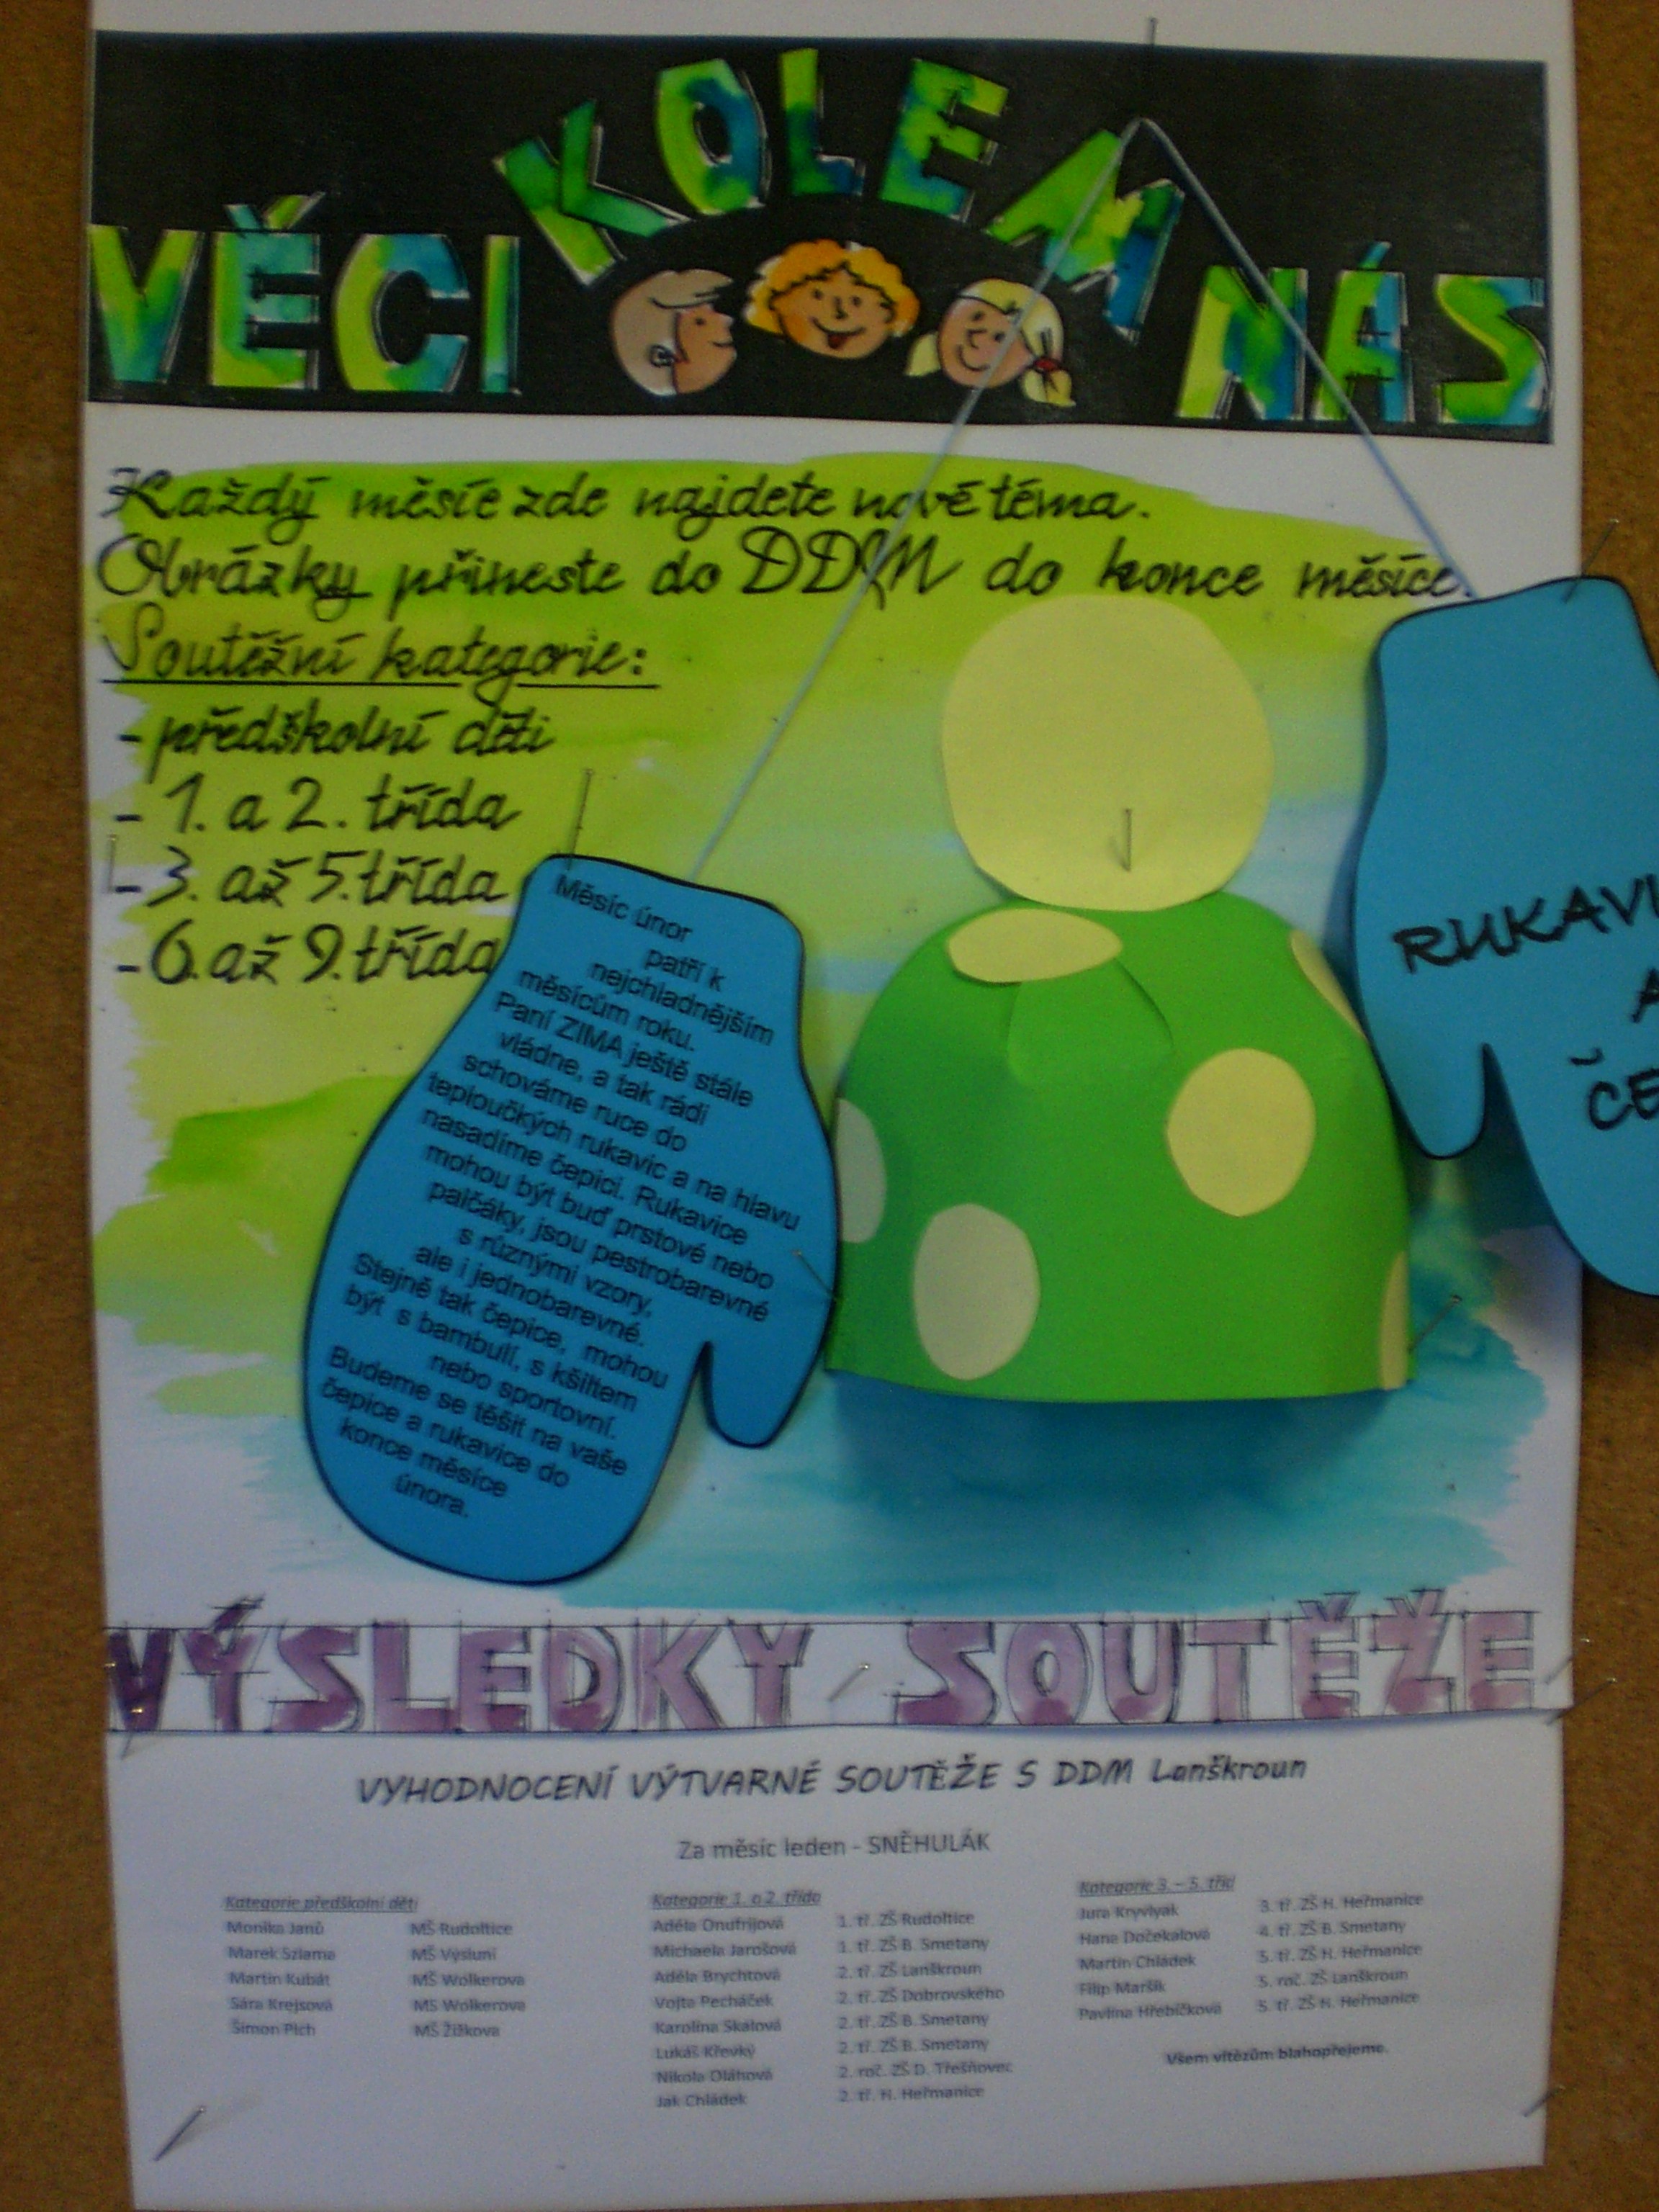 VĚCI KOLEM NÁS
Každý měsíc zde najdete nové téma.
Obrázky přineste do DDM do konce měsíce.
Soutěžní kategorie:
- předškolní děti
- 1. a 2. třída
- 3. až 5. třída
- 6. až 9. třída
Měsíc únor
patří k
nejchladnějším
měsícům roku.
Paní ZIMA ještě stále
vládne, a tak rádi
schováme ruce do
teploučkých rukavic a na hlavu
nasadíme čepici. Rukavice
mohou být buď prstové nebo
palčáky, jsou pestrobarevné
s různými vzory,
ale i jednobarevné.
Stejně tak čepice, mohou
být s bambulí, s kšiltem
nebo sportovní.
Budeme se těšit na vaše
čepice a rukavice do
konce měsíce
února.
RUKAVI
A
ČE
VÝSLEDKY SOUTĚŽE
VYHODNOCENÍ VÝTVARNÉ SOUTĚŽE S DDM Lanškroun
Za měsíc leden - SNĚHULÁK
Kategorie předškolní děti
Monika Janů MŠ Rudoltice
Marek Szlama MŠ Výsluní
Martin Kubát MŠ Wolkerova
Sára Krejsová MŠ Wolkerova
Šimon Pich MŠ Žižkova
Kategorie 1. a 2. třída
Adéla Onufrijová 1. tř. ZŠ Rudoltice
Michaela Jarošová 1. tř. ZŠ B. Smetany
Adéla Brychtová 2. tř. ZŠ Lanškroun
Vojta Pecháček 2. tř. ZŠ Dobrovského
Karolína Skalová 2. tř. ZŠ B. Smetany
Lukáš Křevký 2. tř. ZŠ B. Smetany
Nikola Oláhová 2. roč. ZŠ D. Třešňovec
Jak Chládek 2. tř. H. Heřmanice
Kategorie 3. – 5. tříd
Jura Kryvlyak 3. tř. ZŠ H. Heřmanice
Hana Dočekalová 4. tř. ZŠ B. Smetany
Martin Chládek 5. tř. ZŠ H. Heřmanice
Filip Maršík 5. roč. ZŠ Lanškroun
Pavlína Hřebíčková 5. tř. ZŠ H. Heřmanice
Všem vítězům blahopřejeme.